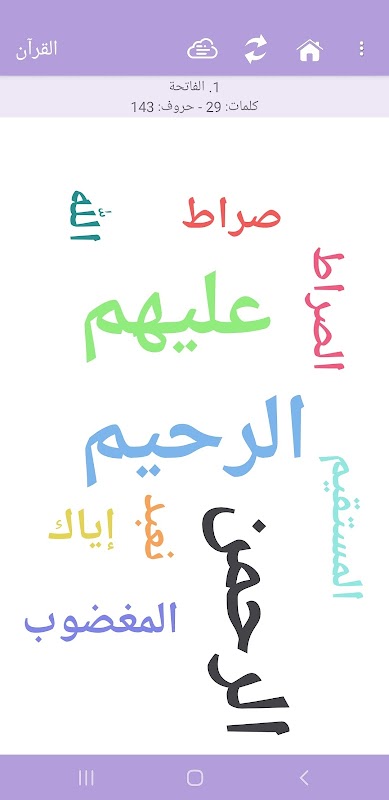 القرآن
1. الفاتحة
كلمات: 29 - حروف: 143
الله
صراط
الصراط
عليهم
الرحيم
المستقيم
إياك
نعبد
الرحمن
المغضوب